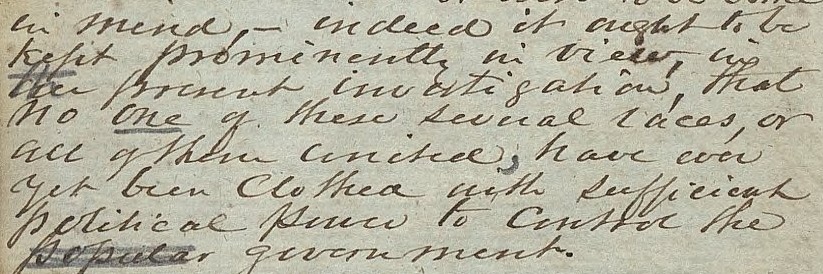 in mind, – indeed it ought to be
kept prominently in view, in
the present investigation, that
no one of these several races, or
all of them united, have ever
yet been clothed with sufficient
political power to control the
popular government.